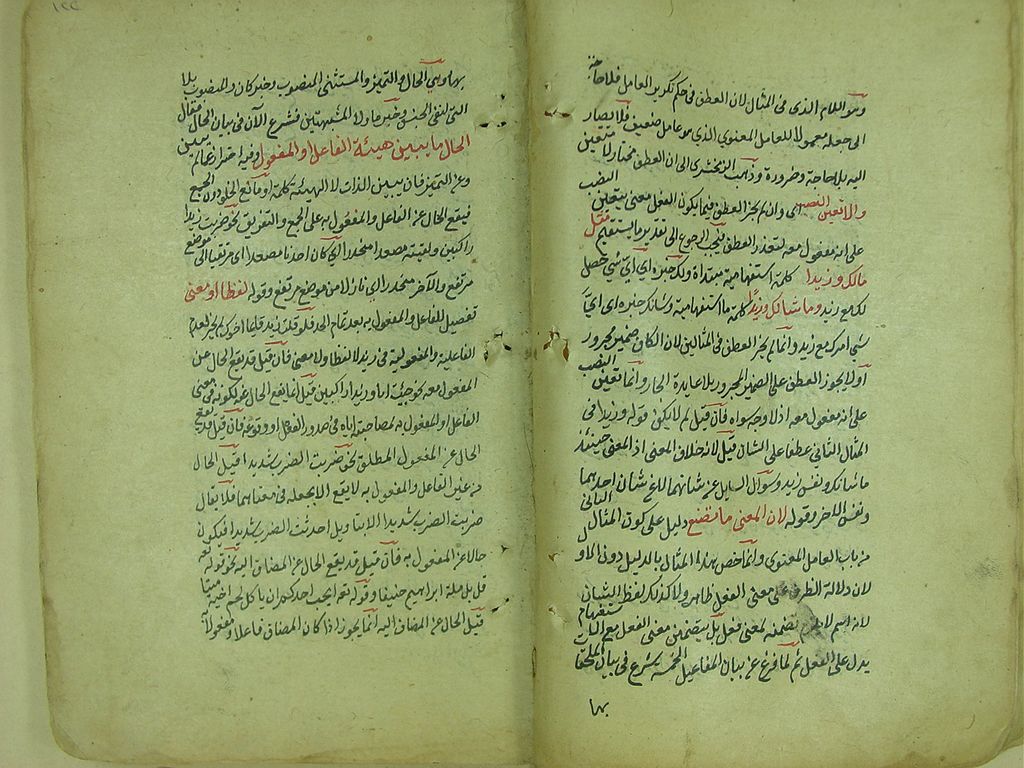 وهو اللام الذى فى المثال لان العطف فى حكم تكرير العامل فلا حاجة
الى جعله معمولا للعامل المعنوى الذى هو عامل ضعيف فلا يصار
اليه بلا حاجة وضرورة وذهب الزمخشرى الى ان العطف مختار لا متعين
والا تعين النصب اى وان لم يجز العطف فيما يكون الفعل معنى يتعين النصب
على انه مفعول معه لتعذر العطف فيجب الرجوع الى تقدير ما يستقيم مثل
مالك وزيدا كلمة ما استفهامية مبتدأة ولك خبره اى اى شئ حصل
لك مع زيد وما شانك وزيدا كلمة ما استفهامية وشانك خبره اى اى
شئ امرك مع زيد وانما لم يجز العطف فى المثالين لان الكاف ضمير مجرور
اولا يجوز العطف على الضمير المجرور بلا عايدة الجار وانما تعين النصب
على انه مفعول معه اذ لا وجه سواه فان قيل لم لا يكون قوله وزيدا فى
المثال الثانى عطفا على الشان قيل لانه خلاف المعنى اذ المعنى حينئذ
ما شانك ونفس زيد وسؤال السايل عن شانهما لا عن شان احدهما
ونفس الاخر وقوله لان المعنى ما تصنع دليل على كون المثال الثانى
من باب العامل المعنوى وانما خص بهذا المثال بالدليل دون الاول
لان دلالة الظرف على معنى الفعل ظاهر ولا كذلك لفظ الشان
لانه اسم تضمنه لمعنى فعل بل يتضمن معنى الفعل مع استفهام
يدل على الفعل ثم لما فرغ عن بيان المفاعيل الخمسة شرع فى بيان الملحقات
بها
بها وهى الحال والتمييز والمستثنى المنصوب وخبر كان والمنصوب بلا
التى لنفى الجنس وخبر ما ولا المشبهتين فشرع الآن فى بيان الحال فقال
الحال ما يبين هيئة الفاعل او المفعول وفيه احتراز عما لم يبين
وعن التمييز فان يبين الذات لا الهيئة كلمة او مانع الخلو دون الجمع
فيقع الحال عن الفاعل والمفعول به على الجمع والتفريق نحو ضربت زيدا
راكبين ولقيته مصعدا منحدرا اى كان احدنا مصعدا اى مرتقيا الى موضع
مرتفع والآخر منحدرا اى نازلا من موضع مرتفع وقوله لفظا او معنى
تفصيل للفاعل والمفعول به بعد تمام الحد فلو قلت زيد قائما اخوك لم يجز لعدم
الفاعلية والمفعولية فى زيد لا لفظا ولا معنى فان قيل قد يقع الحال عن
المفعول معه نحو جئت انا وزيدا راكبين قيل انما يقع الحال عنه لكونه فى معنى
الفاعل او المفعول به لمصاحبته اياه فى صدور الفعل او وقوعه فان قيل قد يقع
الحال عن المفعول المطلق نحو ضربت الضرب شديدا قيل الحال
من غير الفاعل والمفعول به لا يقع الا بجعله فى معناهما فلا يقال
ضربت الضرب شديدا الا بتاويل احدثت الضرب شديدا فيكون
حالا عن المفعول به فان قيل قد يقع الحال عن المضاف اليه نحو قوله تعه
قل بل ملة ابراهيم حنيفا وقوله تعه ايحب احدكم ان ياكل لحم اخيه ميتا
قيل الحال عن المضاف اليه انما يجوز اذا كان المضاف فاعلا او مفعولا